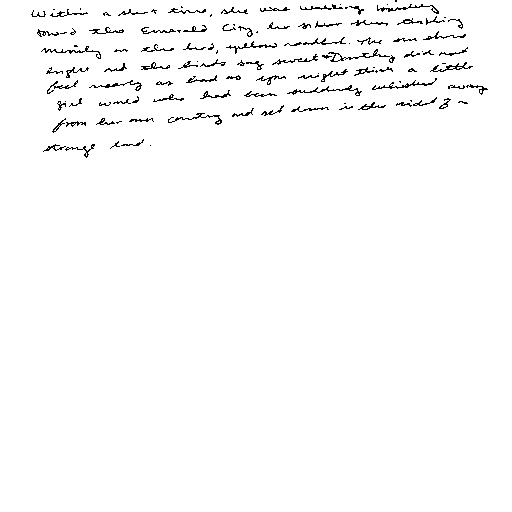 Within a short time, she was walking briskly
toward the Emerald City, her silver shoes tinkling
merrily on the hard, yellow roadbed. The sun shone
bright and the birds sang sweet and Dorothy did not
feel nearly as bad as you might think a little
girl would who had been suddenly whisked away
from her own country and set down in the midst of a
strange land.